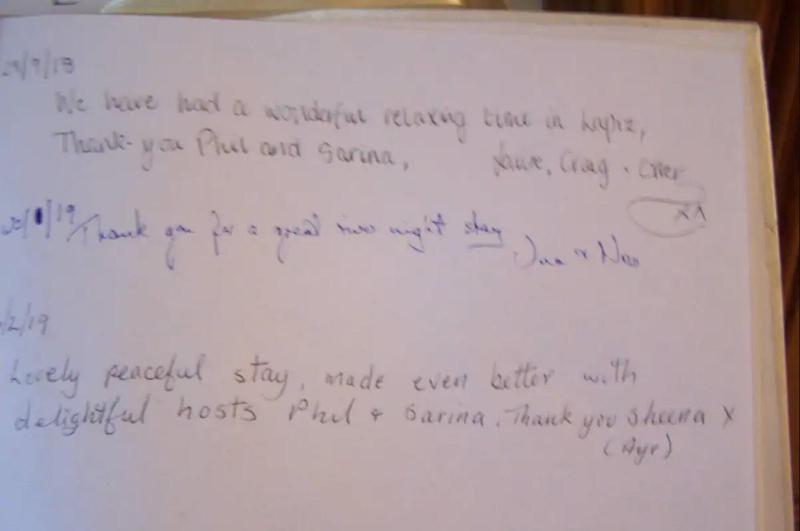 29/9/18
We have had a wonderful relaxing time in
Thank-you Phil and Sarina, Craig
/19 Thank you for a great two night stay
/2/19
Lovely peaceful stay, made even better with
delightful hosts Phil & Sarina. Thank you Sheena x
(Ayr)